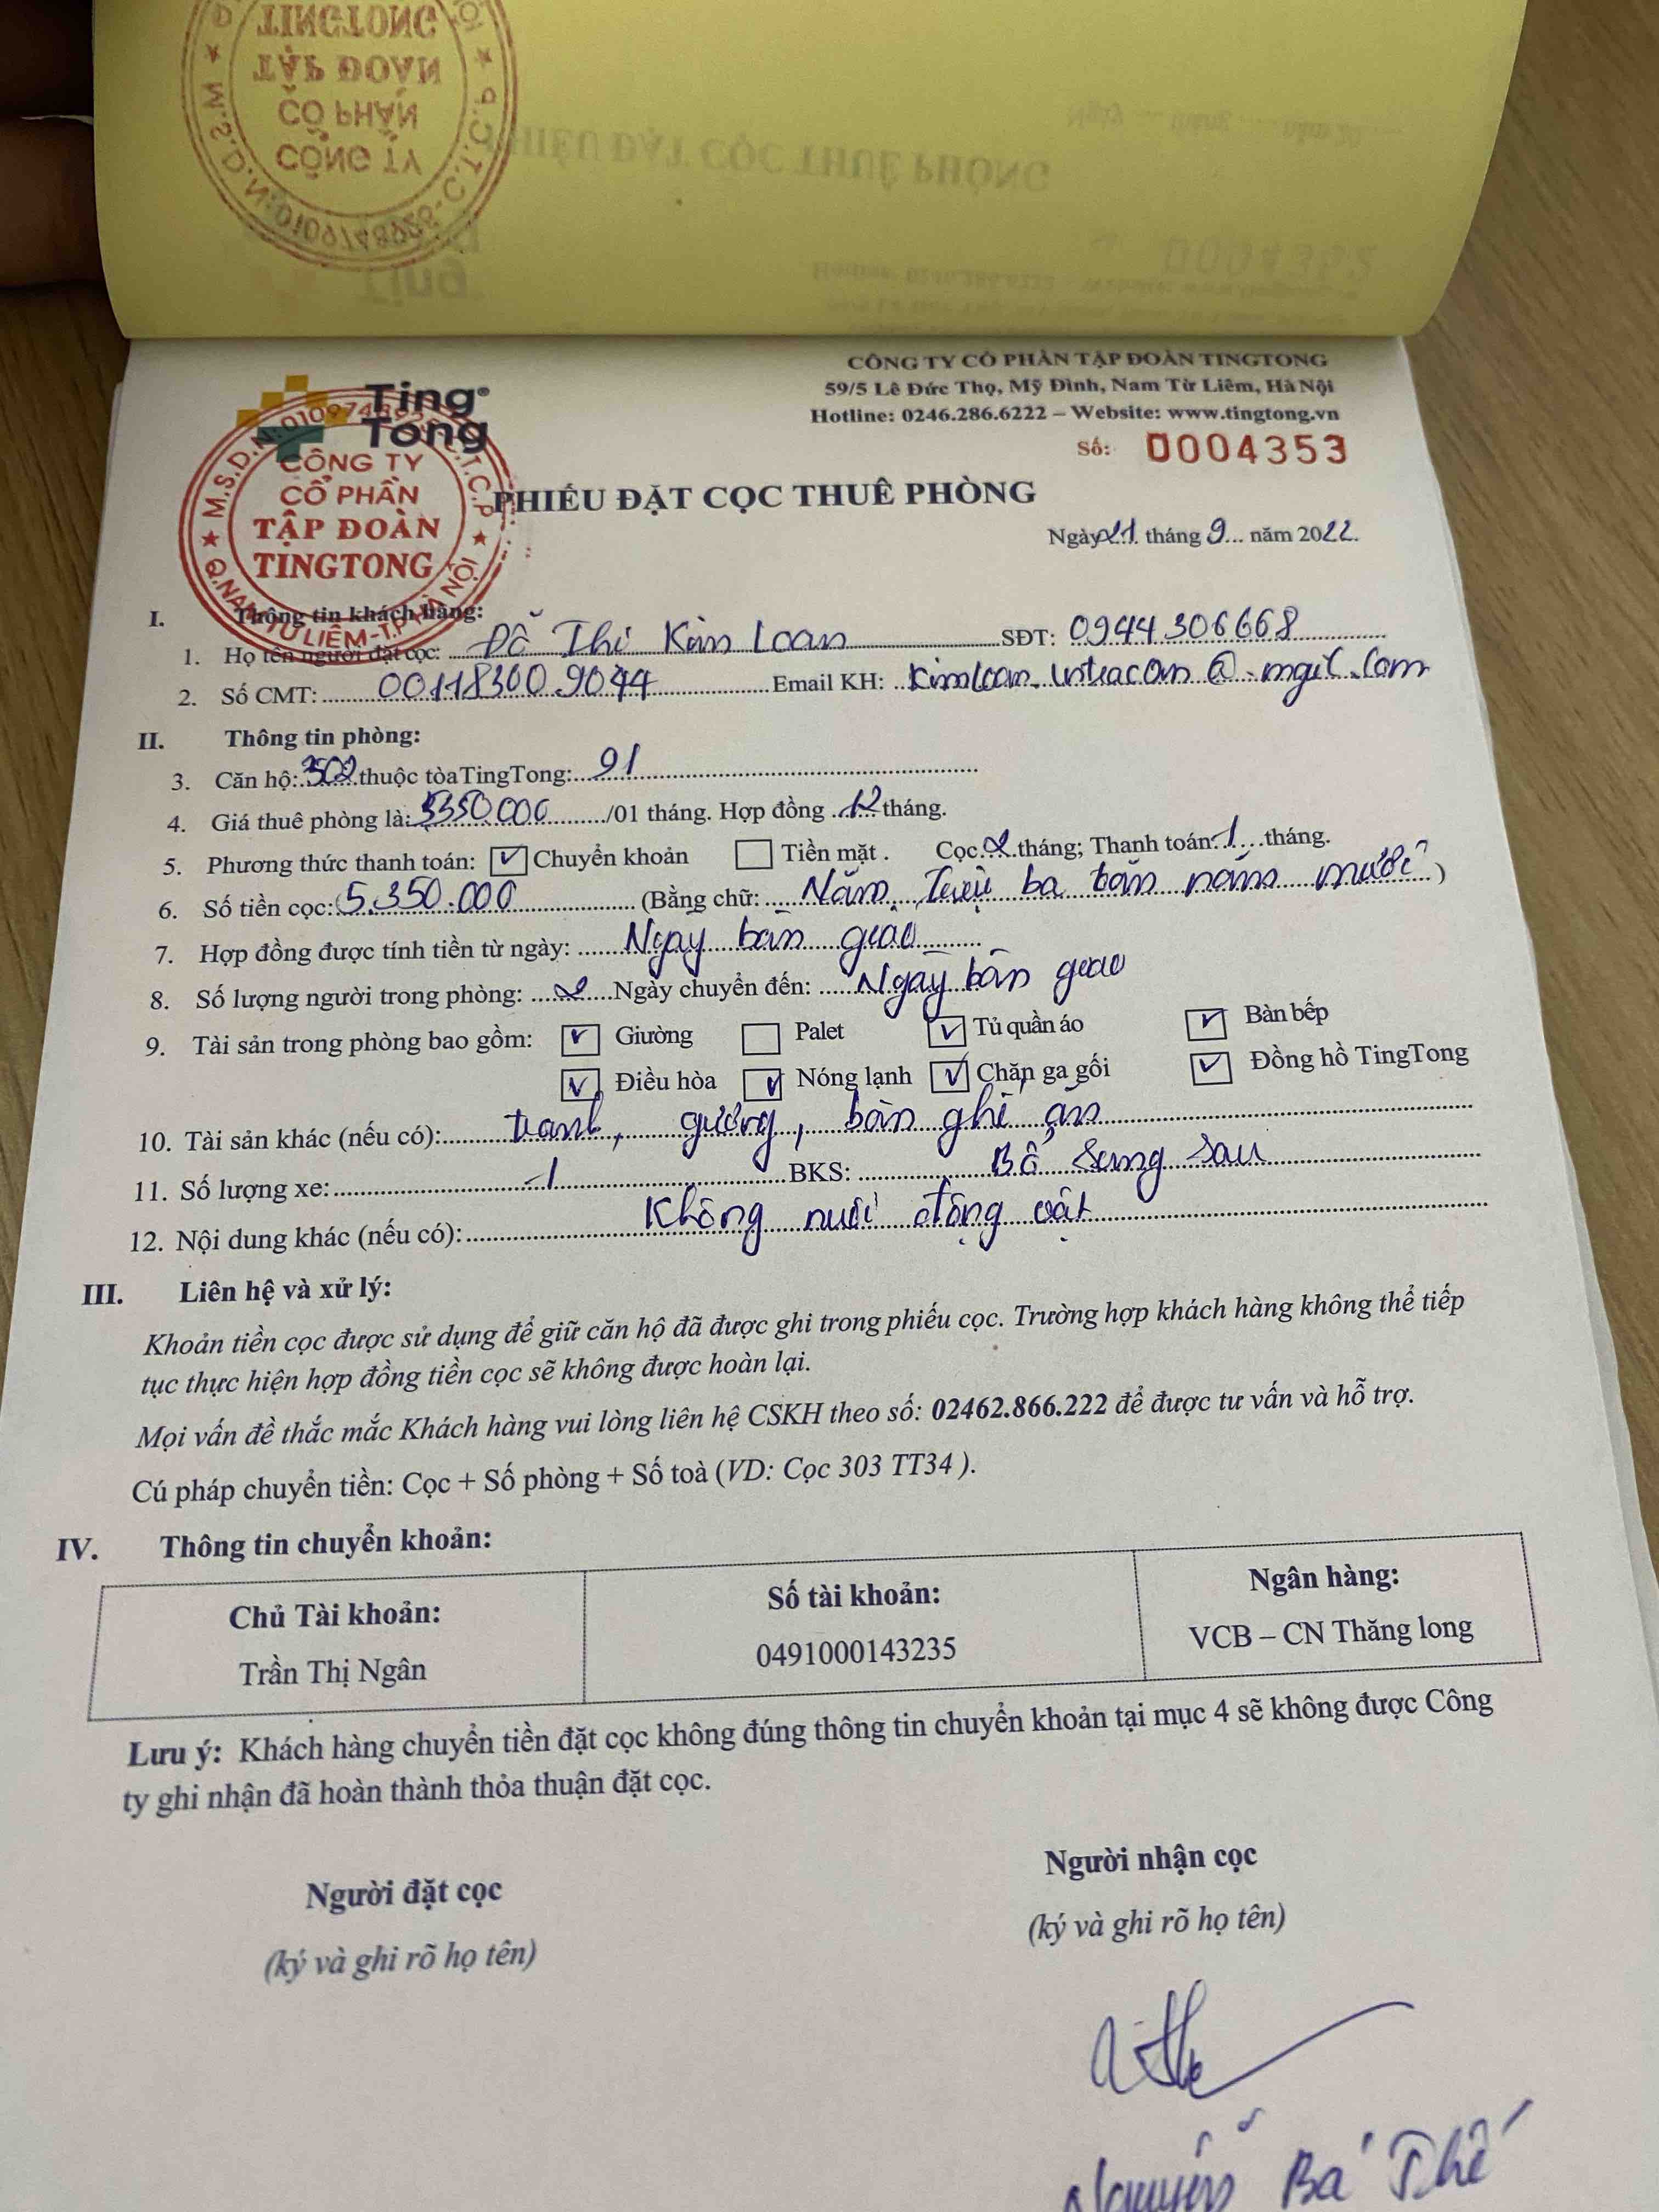 TINGTONG
TẬP ĐOÀN
CỔ PHẦN
CÔNG TY
PHIẾU ĐẶT CỌC THUÊ PHÒNG
0004352
Ting
CÔNG TY CỔ PHẦN TẬP ĐOÀN TINGTONG
59/5 Lê Đức Thọ, Mỹ Đình, Nam Từ Liêm, Hà Nội
Hotline: 0246.286.6222 – Website: www.tingtong.vn
Số: 0004353
Ting Tong
CÔNG TY
CỔ PHẦN
TẬP ĐOÀN
TINGTONG
Q.NAM TỪ LIÊM-T.P HÀ NỘI
PHIẾU ĐẶT CỌC THUÊ PHÒNG
Ngày 21 tháng 9 năm 2022.
I. Thông tin khách hàng:
1. Họ tên người đặt cọc: Đỗ Thị Kim Loan SĐT: 0944306668
2. Số CMT: 001183009044 Email KH:
II. Thông tin phòng:
3. Căn hộ: 302 thuộc tòa TingTong: 91
4. Giá thuê phòng là: 5350000 /01 tháng. Hợp đồng 12 tháng.
5. Phương thức thanh toán: ✓ Chuyển khoản Tiền mặt. Cọc 2 tháng; Thanh toán: 1 tháng.
6. Số tiền cọc: 5.350.000 (Bằng chữ: Năm Triệu ba trăm năm mươi)
7. Hợp đồng được tính tiền từ ngày: Ngày bàn giao
8. Số lượng người trong phòng: 2 Ngày chuyển đến: Ngày bàn giao
9. Tài sản trong phòng bao gồm: ✓ Giường Palet ✓ Tủ quần áo ✓ Bàn bếp
✓ Điều hòa ✓ Nóng lạnh ✓ Chăn ga gối ✓ Đồng hồ TingTong
10. Tài sản khác (nếu có): tranh, gương, bàn ghế ăn
11. Số lượng xe: 1 BKS: Bổ sung sau
12. Nội dung khác (nếu có): Không nuôi động vật
III. Liên hệ và xử lý:
Khoản tiền cọc được sử dụng để giữ căn hộ đã được ghi trong phiếu cọc. Trường hợp khách hàng không thể tiếp
tục thực hiện hợp đồng tiền cọc sẽ không được hoàn lại.
Mọi vấn đề thắc mắc Khách hàng vui lòng liên hệ CSKH theo số: 02462.866.222 để được tư vấn và hỗ trợ.
Cú pháp chuyển tiền: Cọc + Số phòng + Số toà (VD: Cọc 303 TT34 ).
IV. Thông tin chuyển khoản:
Chủ Tài khoản: Số tài khoản: Ngân hàng:
Trần Thị Ngân 0491000143235 VCB – CN Thăng long
Lưu ý: Khách hàng chuyển tiền đặt cọc không đúng thông tin chuyển khoản tại mục 4 sẽ không được Công
ty ghi nhận đã hoàn thành thỏa thuận đặt cọc.
Người đặt cọc Người nhận cọc
(ký và ghi rõ họ tên) (ký và ghi rõ họ tên)
Nguyễn Bá Thế